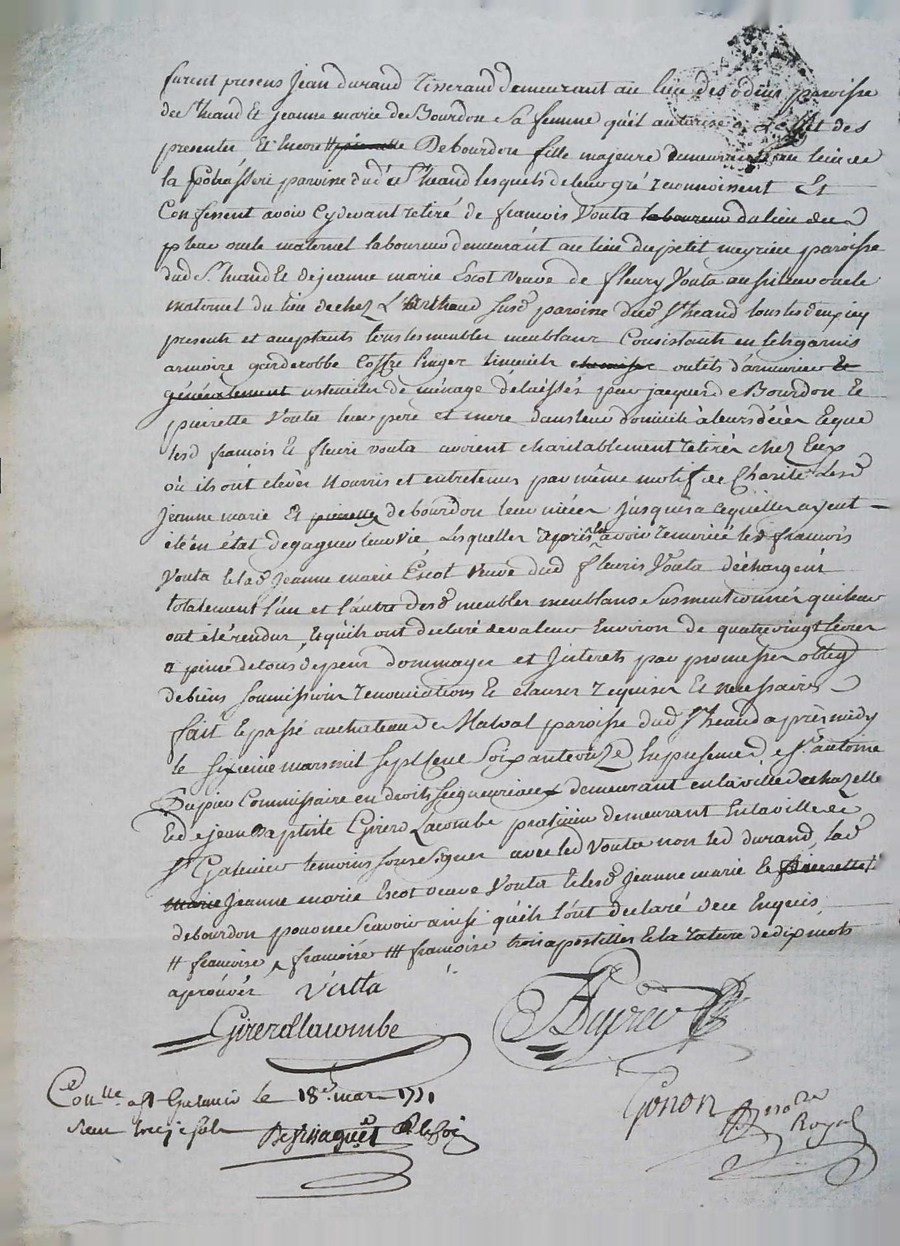 furent presens Jean durand Tisserand demeurant au lieu des odeus paroisse
de St heand Et jeanne marie de Bourdon Sa femme quil autorise a Leffet des
presentes Et Encore # pierrette DeBourdon fille majeure demeurante au lieu de
la paroisse dud St heand lesquels de leur gré reconnoissent Et
Confessent avoir Cy devant retiré de francois Vouta laboureur du lieu de
leur oncle maternel laboureur demeurant au lieu du petit meyrieu paroisse
dud St heand Et de jeanne marie Escot Veuve de fleury Vouta aussi leur oncle
maternel du lieu de chez L'Berthaud susd paroisse dud St heand tous les deux icy
presents et aceptants tous les meubles meublans Consistants en lits garnis
armoire garderobbe Coffre linges outils d'armurier Et
généralement ustenciles de ménage délaissés par jacques de Bourdon Et
pierrette Vouta leur pere et mere dans leur domicile à leurs décès Et que
lesd francois Et fleuri vouta avoient charitablement retirés chez Eux
où ils ont élevés Nourris et entretenus par même motif de Charité Lesd
jeanne marie Et pierrette debourdon leur nièces jusques a ce quelles ayent
été en état de gagner leur vie Lesquelles après les avoir remercié led francois
Vouta Et lad Jeanne marie Escot Veuve dud fleuris Vouta déchargent
totalement l'un et l'autre desd meubles meublans Susmentionnés qui leur
ont été rendus, Et quils ont declaré de valeur Environ de quatre vingt livres
a peine de tous depens dommages et Interets par promesses oblig
de biens soumissions renonciations Et clauses requises Et necessaires
fait Et passé au chateau de Malval paroisse dud St heand après midy
le sixieme mars mil sept cent Soixante onze En presence de sr antoine
Dupier Commissaire en droits seigneuriaux demeurant en la ville de chazelle
Et de jean Baptiste Girerd Lacombe praticien demeurant En la ville de
St Galmier temoins soussignes avec led Vouta non led durand, lad
marie Jeanne marie Escot veuve Vouta Et lesd Jeanne marie Et pierrette
debourdon pour ne Scavoir ainsi quils l'ont déclaré de ce Enquis
# francoise, francoise ### francoise trois apostilles Et la rature de dix mots
aprouvés Vutta
Girerd lacombe
Dupier
Conlle a St Galmier le 18e mars 1771
Gonon
Royal